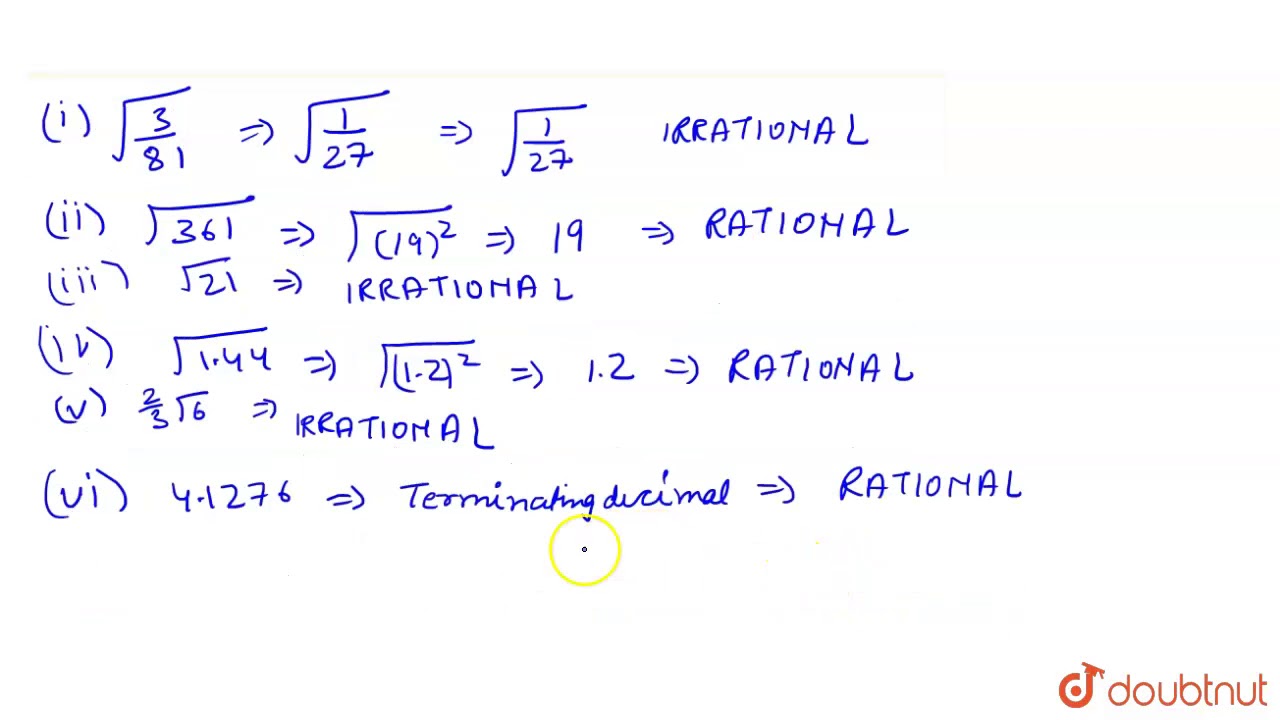 (i) √(3/81) ⇒ √(1/27) ⇒ √(1/27) IRRATIONAL
(ii) √361 ⇒ √(19)² ⇒ 19 ⇒ RATIONAL
(iii) √21 ⇒ IRRATIONAL
(iv) √1.44 ⇒ √(1.2)² ⇒ 1.2 ⇒ RATIONAL
(v) 2/3 √6 ⇒ IRRATIONAL
(vi) 4.1276 ⇒ Terminating decimal ⇒ RATIONAL
doubtnut